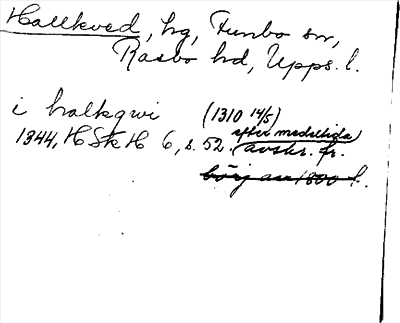 Hallkved, hg, Funbo sn,
Rasbo hd, Upps. l.
i halkqwi (1310 14/5)
efter medeltida
1344, HSkH 6, s. 52. (avskr. fr.
börj av 1800 t.